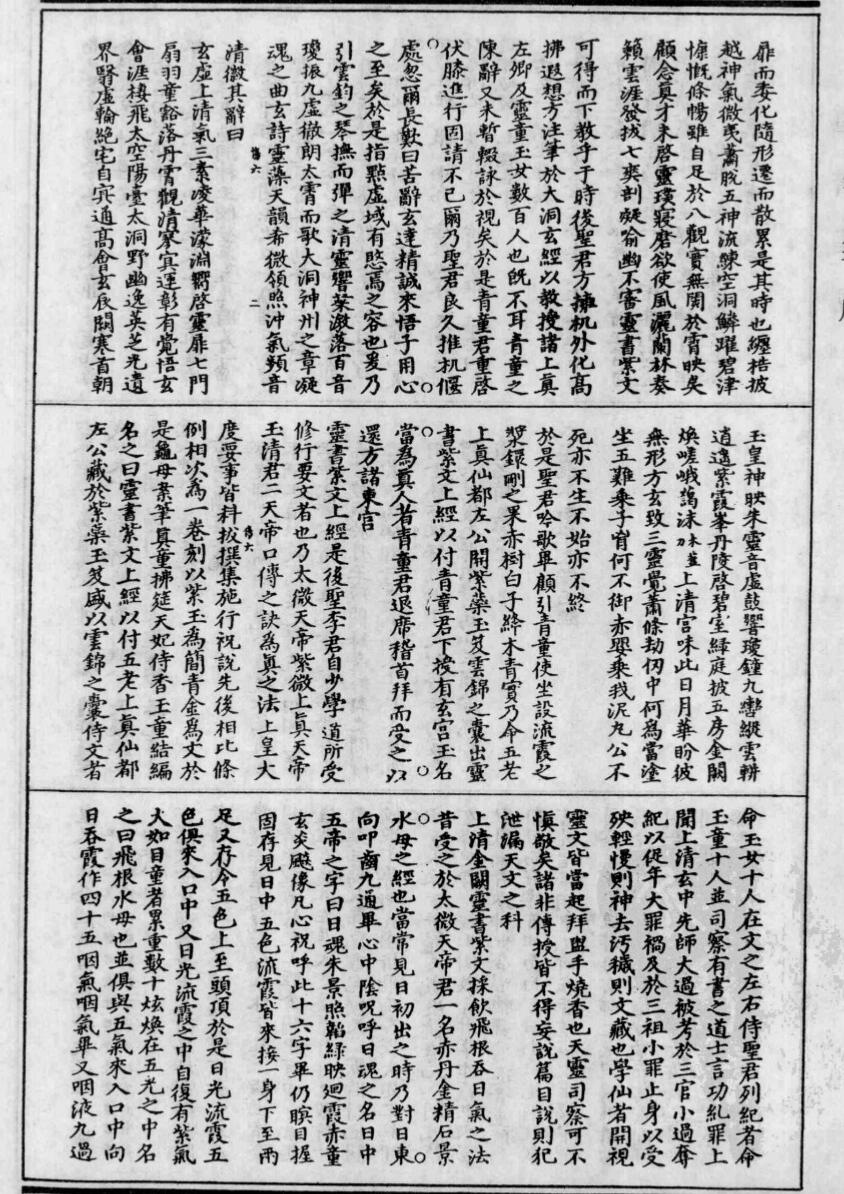 扉而委化隨形遷而散累是其時也纏梏披
越神氣微曵蕭脫五神流鍊空洞鱗躍碧津
慷慨條暢雖自足於八觀實無闇於霄映矣
顧念真才未啓靈璞寢磨欲使風灑蘭林奏
籟雲涯發拔七爽剖凝喻幽不審靈書紫文
可得而下教乎于時後聖君方擁机外化高
拂遐想方注筆於大洞玄經以教授諸上真
左卿及靈童玉女數百人也旣不耳青童之
陳辭又未暫輟詠於視矣於是青童君重啓
伏膝進行固請不已爾乃聖君良久推机偃
處忽爾長歎曰苦辭玄達精誠來悟子用心
之至矣於是指點虛域有愍焉之容也爰乃
引雲鈞之琴撫而彈之清靈響䓇激落百音
瓊振九虛徹朗太霄而歌大洞神州之章凝
魂之曲玄詩靈藻天韻希微領照沖氣頻音
清微其辭曰
玄虛上清氣三素凌華濛淵響啓靈扉七門
扇羽童豁落丹霄觀清寥寘運彰有覺悟玄
會涯棲飛太空陽臺太洞野幽逸英芝光遺
界翳虛輪絶宅自宾通高會玄辰闕寒首朝
玉皇神映朱靈音虛鼓響瓊鐘九轡縱雲軿
逍遙紫霞峯丹陵啓碧室綠庭披五房金闕
煥嵯峨藹沫上清宮味此日月華盼彼
無形方玄致三靈覺蕭條劫仞中何爲當塗
坐五難乘子胷何不御赤嬰乘我泥丸公不
死亦不生不始亦不終
於是聖君吟歌畢顧引青童使坐設流霞之
漿鐶剛之果赤樹白子絳木青實乃命五老
上真仙都左公開紫蘂玉笈雲錦之囊出靈
書紫文上經以付青童君下授有玄宮玉名
當為真人者青童君退席稽首拜而受之以
還方諸東宮
靈書紫文上經是後聖李君自少學道所受
修行要文者也乃太微天帝紫微上真天帝
玉清君二天帝口傳之訣為真之法上皇大
度要事皆科拔撰集施行祝說先後相比條
例相次為一卷刻以紫玉為簡青金爲文於
是龜母案筆真童拂筵天妃侍香玉童結編
名之曰靈書紫文上經以付五老上真仙都
左公藏於紫蘂玉笈盛以雲錦之囊侍文者
命玉女十人在文之左右侍聖君列紀者命
玉童十人並司察有書之道士言功糺罪上
聞上清玄中先師大過被考於三官小過奪
紀以促年大罪禍及於三祖小罪止身以受
殃輕慢則神去汚穢則文藏也學仙者開視
靈文皆當起拜盥手燒香也天靈司察可不
慎敬矣諸非傳授皆不得妄說篇目說則犯
泄漏天文之科
上清金闕靈書紫文採飲飛根吞日氣之法
昔受之於太微天帝君一名赤丹金精石景
水母之經也當常見日初出之時乃對日東
向叩齒九通畢心中陰呪呼日魂之名日中
五帝之字曰日魂朱景照韜綠映迴霞赤童
玄炎飈像凡心祝呼此十六字畢仍瞑目握
固存見日中五色流霞皆來接一身下至兩
足又存令五色上至頭頂於是日光流霞五
色俱來入口中又日光流霞之中自復有紫氣
大如目童者累重數十炫煥在五光之中名
之曰飛根水母也並俱與五氣來入口中向
日吞霞作四十五咽氣咽氣畢又咽液九過